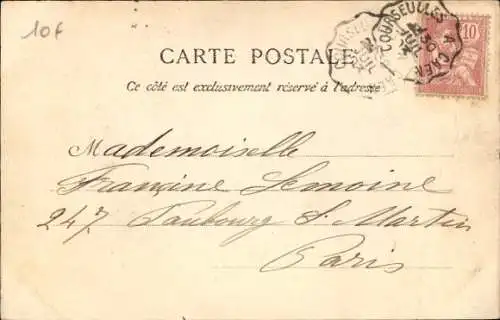 10f
CARTE POSTALE
Ce côté est exclusivement réservé à l'adresse
COURSEULLES A CAEN
10
Mademoiselle
Francine Lemoine
247 Faubourg St Martin
Paris